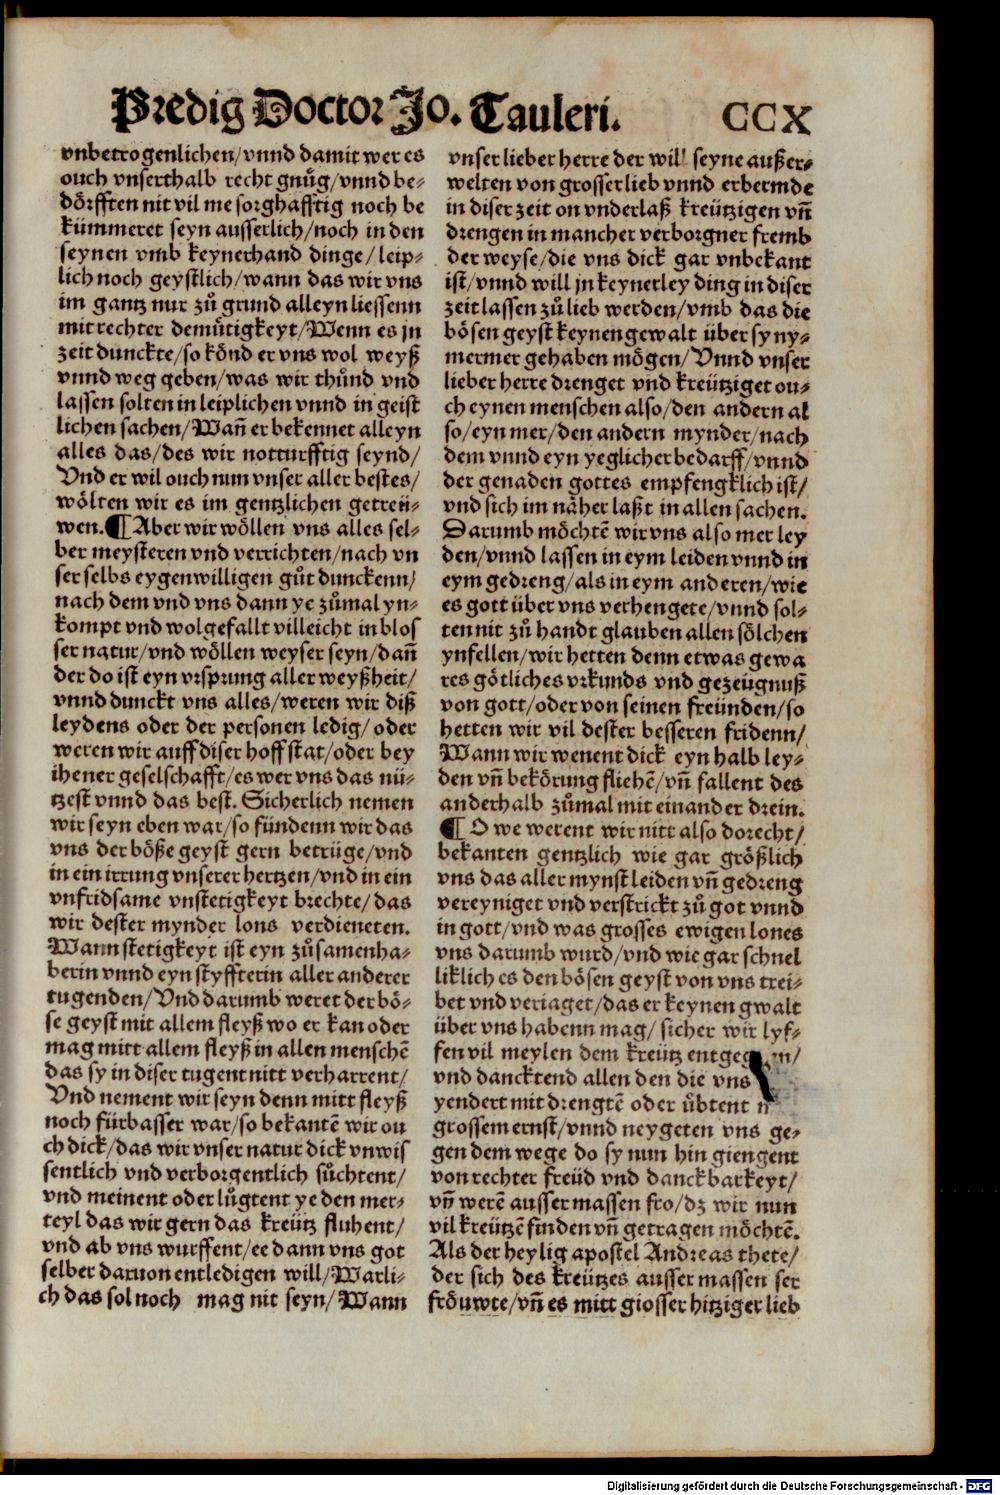 Predig Doctor Jo. Tauleri.
CCX
vnbetrogenlichen/vnnd damit wer es
ouch vnserthalb recht gnůg/vnnd be⸗
dörfften nit vil me sorghafftig noch be
kümmeret seyn ausserlich/noch in den
seynen vmb keynerhand dinge/leip⸗
lich noch geystlich/wann das wir vns
im gantz nur zů grund alleyn liessenn
mit rechter demůtigkeyt/Wenn es jn
zeit dunckte/so könd er vns wol weyß
vnnd weg geben/was wir thůnd vnd
lassen solten in leiplichen vnnd in geist
lichen sachen/Wañ er bekennet alleyn
alles das/des wir notturfftig seynd/
Vnd er wil ouch nun vnser aller bestes/
wölten wir es im gentzlichen getreü⸗
wen.¶Aber wir wöllen vns alles sel⸗
ber meysteren vnd verrichten/nach vn
ser selbs eygenwilligen gůt dunckenn/
nach dem vnd vns dann ye zůmal yn⸗
kompt vnd wolgefallt villeicht in blos
ser natur/vnd wöllen weyser seyn/dañ
der do ist eyn vrsprung aller weyßheit/
vnnd dunckt vns alles/weren wir diß
leydens oder der personen ledig/oder
weren wir auff diser hoffstat/oder bey
ihener geselschafft/es wer vns das nü⸗
tzest vnnd das best. Sicherlich nemen
wir seyn eben war/so fündenn wir das
vns der böße geyst gern betrüge/vnd
in ein irrung vnserer hertzen/vnd in ein
vnfridsame vnstetigkeyt brechte/das
wir dester mynder lons verdieneten.
Wann stetigkeyt ist eyn zůsamenha⸗
berin vnnd eyn styffterin aller anderer
tugenden/Vnd darumb weret der bö⸗
se geyst mit allem fleyß wo er kan oder
mag mitt allem fleyß in allen menschē
das sy in diser tugent nitt verharrent/
Vnd nement wir seyn denn mitt fleyß
noch fürbasser war/so bekantē wir ou
ch dick/das wir vnser natur dick vnwis
sentlich vnd verborgentlich sůchtent/
vnd meinent oder lůgtent ye den mer⸗
teyl das wir gern das kreütz fluhent/
vnd ab vns wurffent/ee dann vns got
selber daruon entledigen will/Warli⸗
ch das sol noch mag nit seyn/Wann
vnser lieber herre der wil seyne außer⸗
welten von grosser lieb vnnd erbermde
in diser zeit on vnderlaß kreützigen vñ
drengen in mancher verborgner fremb
der weyse/die vns dick gar vnbekant
ist/vnnd will jn keynerley ding in diser
zeit lassen zů lieb werden/vmb das die
bösen geyst keynen gewalt über sy ny⸗
mermer gehaben mögen/Vnnd vnser
lieber herre drenget vnd kreütziget ou⸗
ch eynen menschen also/den andern al
so/eyn mer/den andern mynder/nach
dem vnnd eyn yeglicher bedarff/vnnd
der genaden gottes empfengklich ist/
vnd sich im näher laßt in allen sachen.
Darumb möchtē wir vns also mer ley
den/vnnd lassen in eym leiden vnnd in
eym gedreng/als in eym anderen/wie
es gott über vns verhengete/vnnd sol⸗
ten nit zů handt glauben allen sölchen
ynfellen/wir hetten denn etwas gewa
res götliches vrkunds vnd gezeügnuß
von gott/oder von seinen freünden/so
hetten wir vil dester besseren fridenn/
Wann wir wenent dick eyn halb ley⸗
den vñ bekörung fliehē/vñ fallent des
anderhalb zůmal mit einander drein.
¶ O we werent wir nitt also dorecht/
bekanten gentzlich wie gar größlich
vns das aller mynst leiden vñ gedreng
vereyniget vnd verstrickt zů got vnnd
in gott/vnd was grosses ewigen lones
vns darumb wurd/vnd wie gar schnel
liklich es den bösen geyst von vns trei⸗
bet vnd veriaget/das er keynen gwalt
über vns habenn mag/sicher wir lyf⸗
fen vil meylen dem kreütz
vnd dancktend allen den die vns
yendert mit drengtē oder ůbtent
grossem ernst/vnnd neygeten vns ge⸗
gen dem wege do sy nun hin giengent
von rechter freüd vnd danckbarkeyt/
vñ werē ausser massen fro/dz wir nun
vil kreützē finden vñ getragen möchtē.
Als der heylig apostel Andreas thete/
der sich des kreützes ausser massen ser
fröuwte/vñ es mitt grosser hitziger lieb
Digitalisierung gefördert durch die Deutsche Forschungsgemeinschaft - DFG